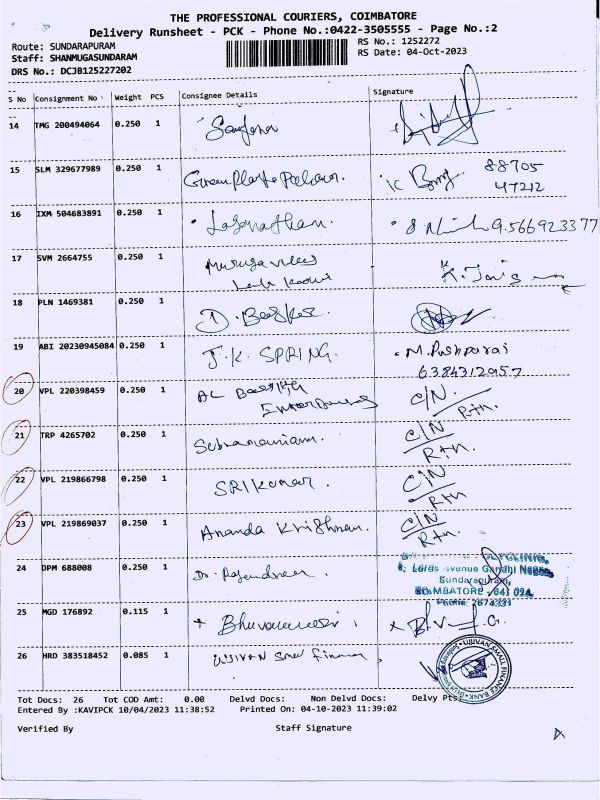 THE PROFESSIONAL COURIERS, COIMBATORE
Delivery Runsheet - PCK - Phone No.:0422-3505555 - Page No.:2
Route: SUNDARAPURAM
RS No.: 1252272
Staff: SHANMUGASUNDARAM
RS Date: 04-Oct-2023
DRS No.: DCJB125227202
S No Consignment No Weight PCS Consignee Details Signature
14 TMG 200494064 0.250 1
15 SLM 329677989 0.250 1 88705
47212
16 IXM 504683891 0.250 1 Jaganathan. 9566923377
17 SVM 2664755 0.250 1
18 PLN 1469381 0.250 1 D. Baskar
19 ABI 20230945084 0.250 1 J.K. SPRING. M. Pushparaj
6384312957
20 VPL 220398459 0.250 1 AL C/N.
Rtn.
21 TRP 4265702 0.250 1 Subramaniam. C/N
Rtn.
22 VPL 219866798 0.250 1 SRIKumar. C/N
Rtn
23 VPL 219869037 0.250 1 Ananda Krishnan. C/N
Rtn.
24 DPM 688008 0.250 1 Dr. Rajendran.
Avenue Gandhi Nagar
Sundarapuram,
COIMBATORE - 641 024
25 MGD 176892 0.115 1 Bhuvaneswari
26 HRD 383518452 0.085 1 UJJIVAN Small Finance
UJJIVAN SMALL FINANCE BANK
Tot Docs: 26 Tot COD Amt: 0.00 Delvd Docs: Non Delvd Docs: Delvy Pts:
Entered By :KAVIPCK 10/04/2023 11:38:52 Printed On: 04-10-2023 11:39:02
Verified By Staff Signature